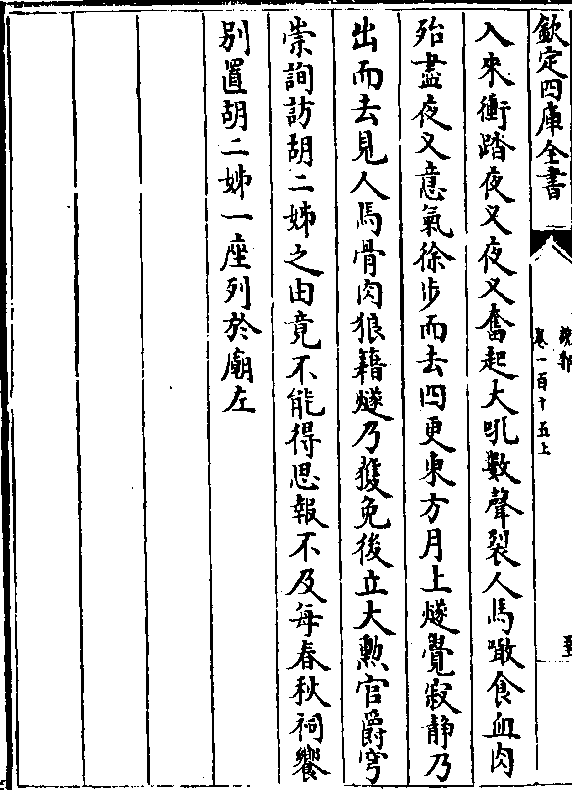 欽定四庫全書
說郛
卷一百十五上
入來衝踏夜叉夜叉奮起大吼數聲裂人馬噉食血肉
殆盡夜叉意氣徐步而去四更東方月上燧覺寂静乃
出而去見人馬骨肉狼籍燧乃獲免後立大勲官爵穹
崇詢訪胡二姊之由竟不能得思報不及每春秋祠饗
别置胡二姊一座列於廟左